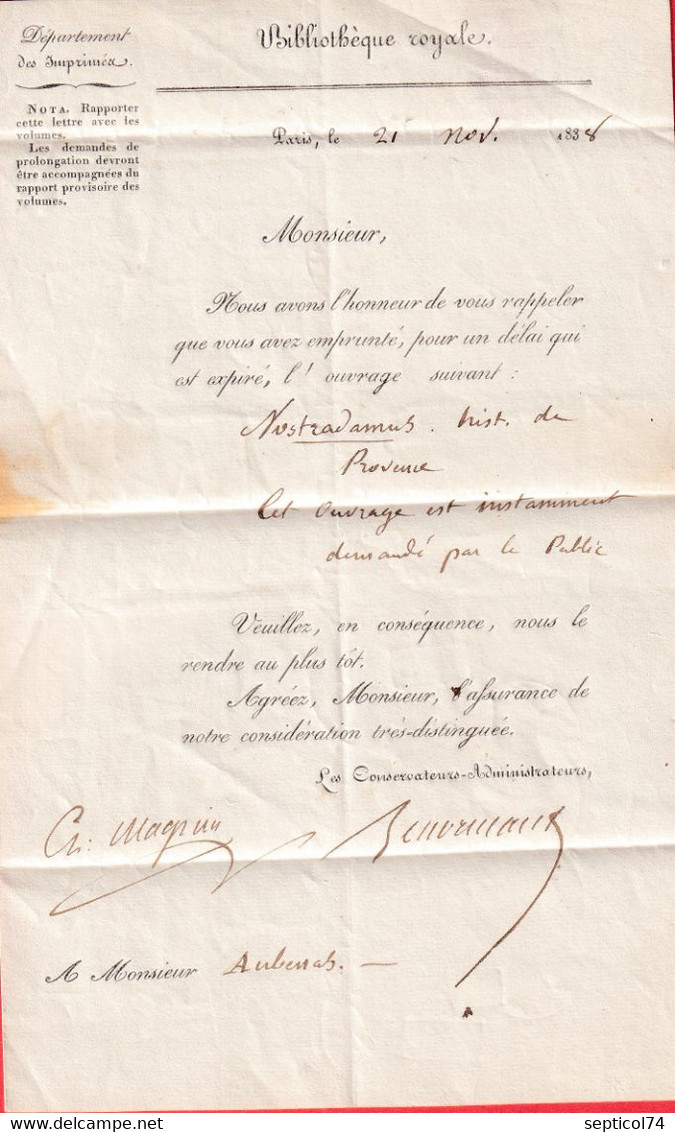 Département
des Imprimés.
NOTA. Rapporter
cette lettre avec les
volumes.
Les demandes de
prolongation devront
être accompagnées du
rapport provisoire des
volumes.
Bibliothèque royale.
Paris, le 21 nov. 1838
Monsieur,
Nous avons l'honneur de vous rappeler
que vous avez emprunté, pour un délai qui
est expiré, l' ouvrage suivant :
Nostradamus. hist. de
Provence
Cet ouvrage est instamment
demandé par le Public
Veuillez, en conséquence, nous le
rendre au plus tôt.
Agréez, Monsieur, l'assurance de
notre considération très-distinguée.
Les Conservateurs-Administrateurs,
Ch. Magnin
A Monsieur
delcampe.net
septicol74